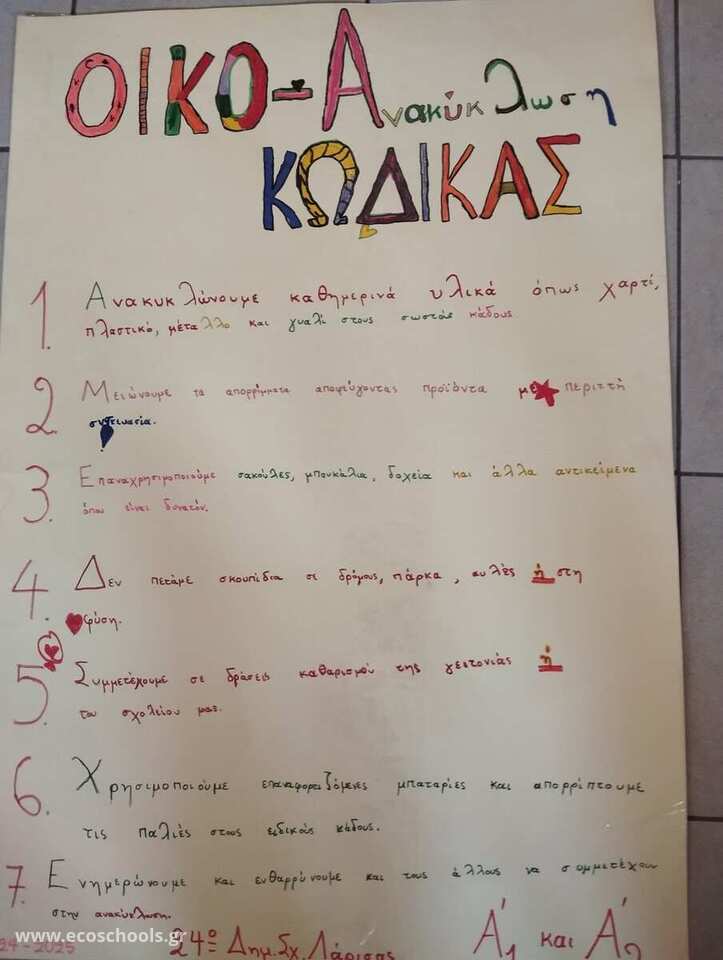 ΟΙΚΟ-Ανακύκλωση
ΚΩΔΙΚΑΣ
1. Ανακυκλώνουμε καθημερινά υλικά όπως χαρτί,
πλαστικό, μέταλλο και γυαλί στους σωστούς κάδους.
2. Μειώνουμε τα απορρίμματα αποφεύγοντας προϊόντα με περιττή
συσκευασία.
3. Επαναχρησιμοποιούμε σακούλες, μπουκάλια, δοχεία και άλλα αντικείμενα
όπου είναι δυνατόν.
4. Δεν πετάμε σκουπίδια σε δρόμους, πάρκα, αυλές ή στη
φύση.
5. Συμμετέχουμε σε δράσεις καθαρισμού της γειτονιάς ή
του σχολείου μας.
6. Χρησιμοποιούμε επαναφορτιζόμενες μπαταρίες και απορρίπτουμε
τις παλιές στους ειδικούς κάδους.
7. Ενημερώνουμε και ενθαρρύνουμε και τους άλλους να συμμετέχουν
στην ανακύκλωση.
www.ecoschools.gr
24-2025 24ο Δημ. Σχ. Λάρισας Α'1 και Α'2